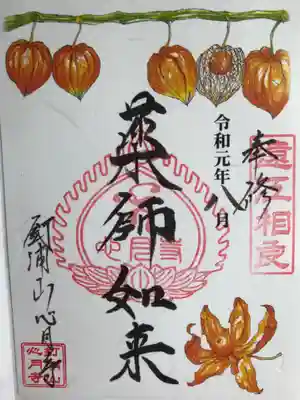 奉修
遠江相良
令和元年八月
藥師如来
心月寺
釘浦山心月寺